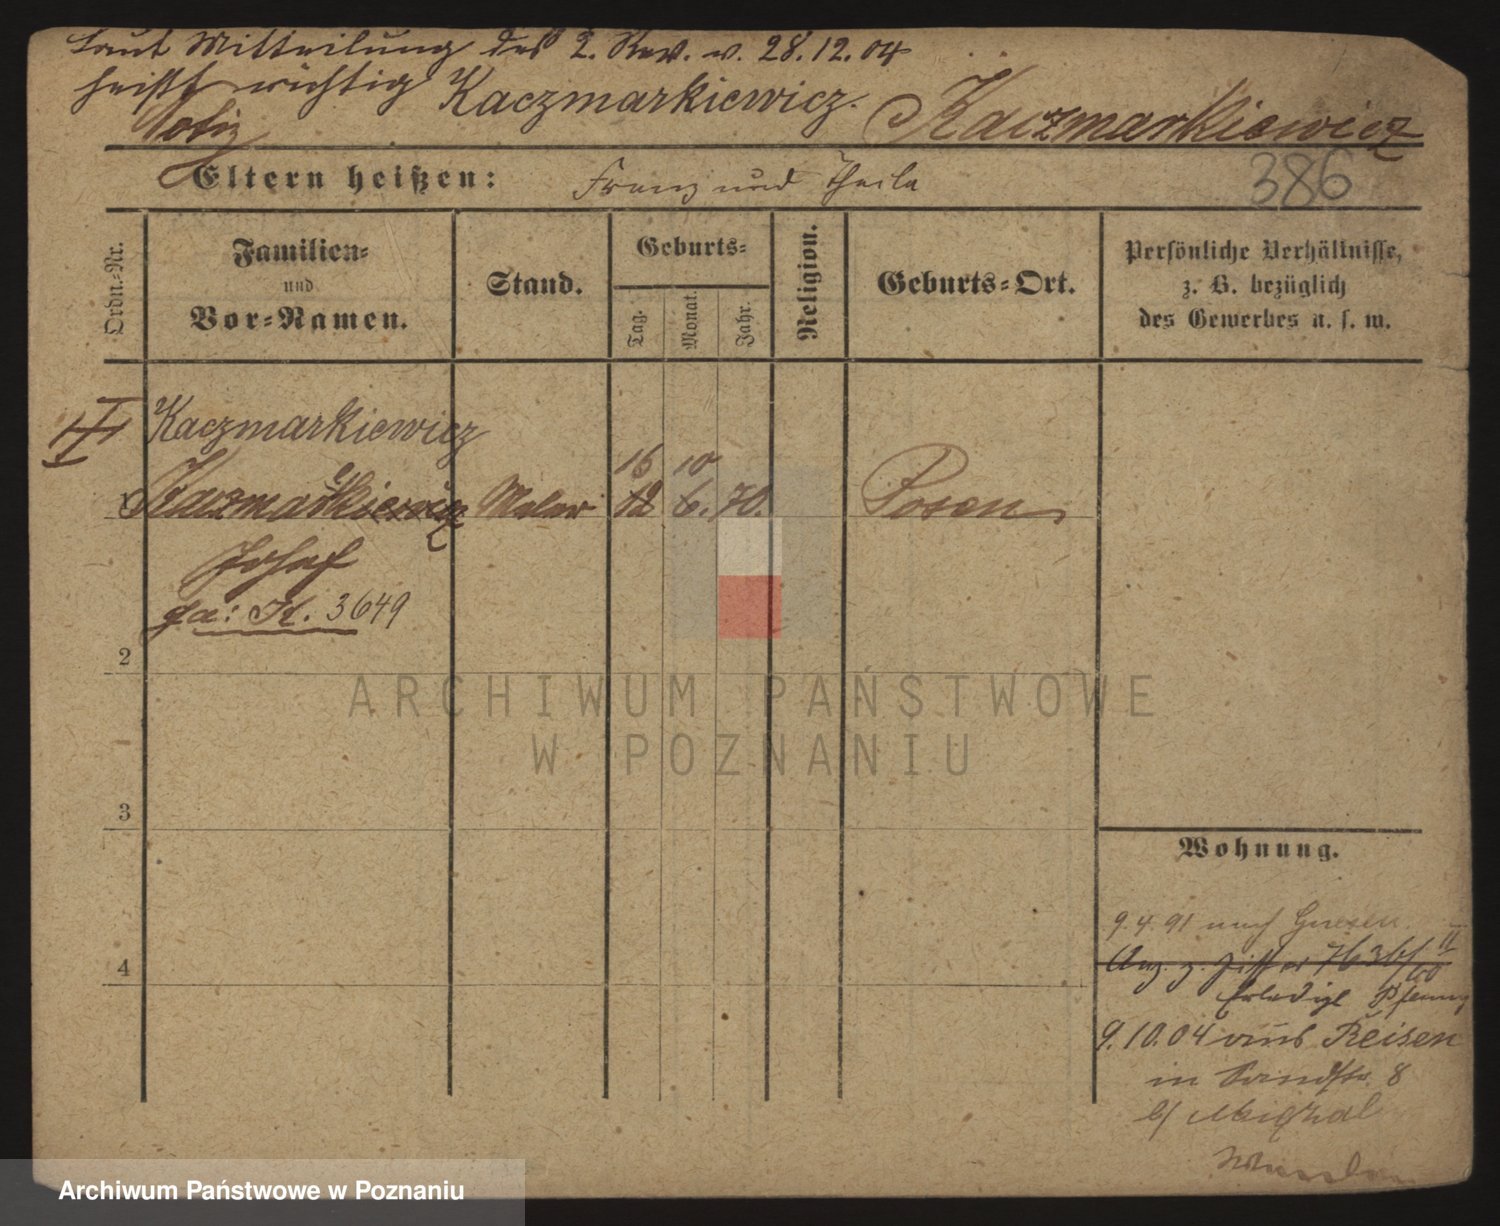 Laut Mitteilung des 2. Rev. v. 28.12.04
heißt richtig Kaczmarkiewicz. Kaczmarkiewicz
Notiz
Eltern heißen: Franz und Thekla
386
Ordn.-Nr.
Familien-
und
Vor-Namen.
Stand.
Geburts-
Tag.
Monat.
Jahr.
Religion.
Geburts-Ort.
Persönliche Verhältnisse,
z. B. bezüglich
des Gewerbes u. s. w.
Kaczmarkiewicz
16 10
1 Kaczmarkiewicz Maler 12 6. 70. Posen
Josef
3649
2
3
4
Wohnung.
9.4.91 nach Gnesen
Erledigt
9.10.04 aus Reisen
in Sandstr. 8
b/
ARCHIWUM PAŃSTWOWE
W POZNANIU
Archiwum Państwowe w Poznaniu